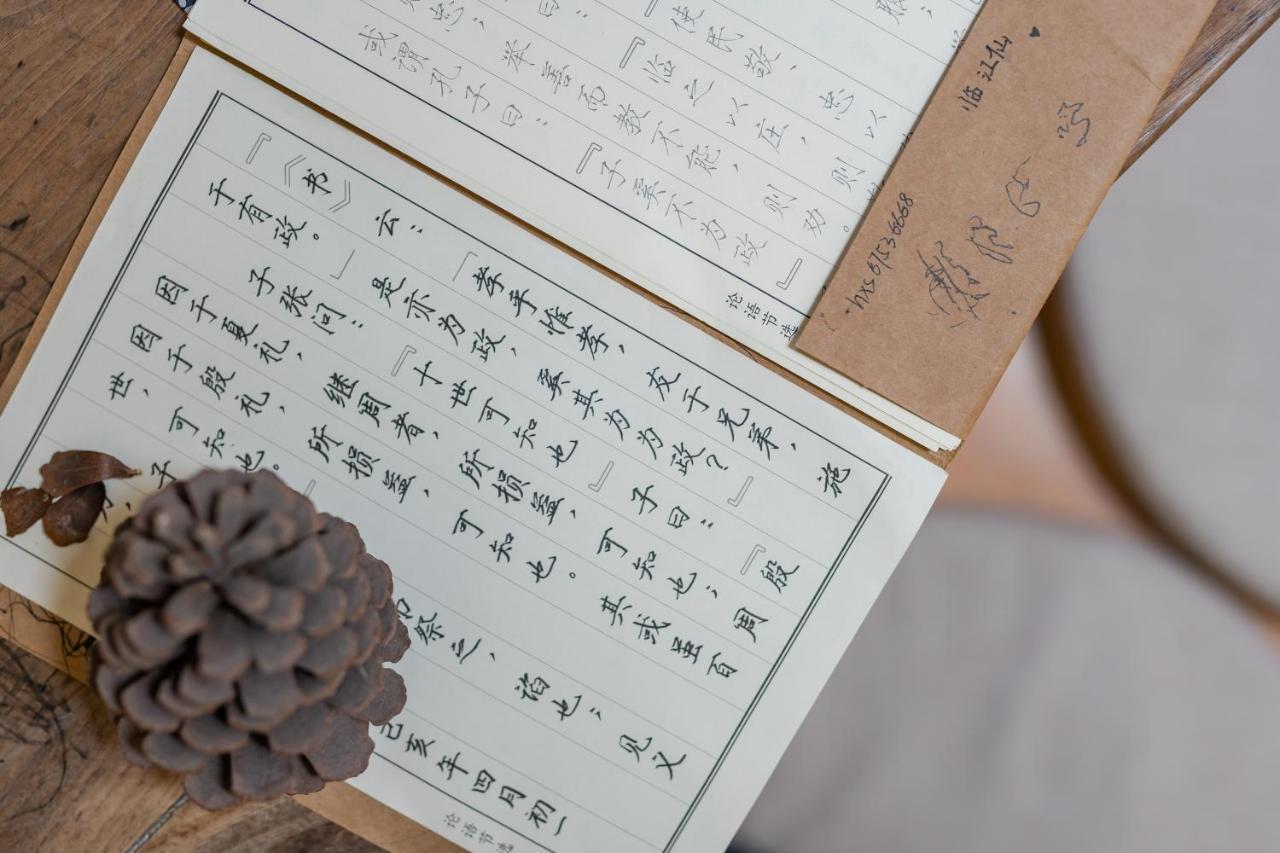 服；
使民敬、忠以
曰：『临之以庄，则
忠；举善而教不能，则劝。
或谓孔子曰：『子奚不为政』
论语节选
临江仙
『《书》云：「孝乎惟孝，友于兄弟，施
于有政。」是亦为政，奚其为为政？」
子张问：『十世可知也』子曰：『殷
因于夏礼，继周者，所损益，可知也；周
因于殷礼，所损益，可知也。其或虽百
世，可知也。
子
祭之，谄也；见义
己亥年四月初一
论语节选